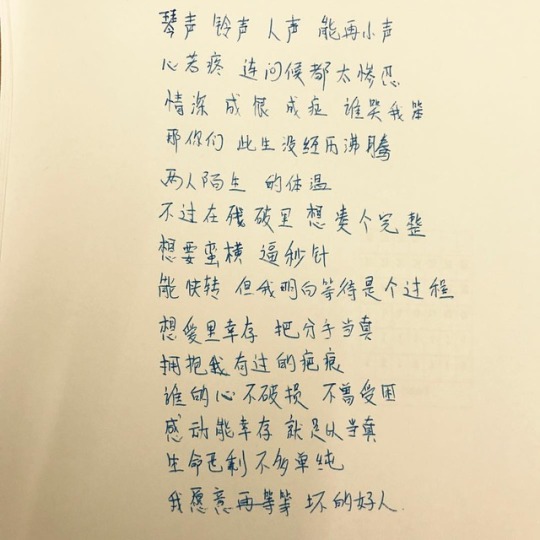 琴声 铃声 人声 能再小声
心若疼 连问候都太惨忍
情深 成恨 成症 谁哭我笨
那你们 此生没经历沸腾
两人陌生 的体温
不过在残破里 想凑个完整
想要蛮横 逼秒针
能快转 但我明白等待是个过程
想爱里幸存 把分手当真
拥抱我有过的疤痕
谁的心不破损 不曾受困
感动能幸存 就足以当真
生命已剩不多单纯
我愿意再等等 坏的好人